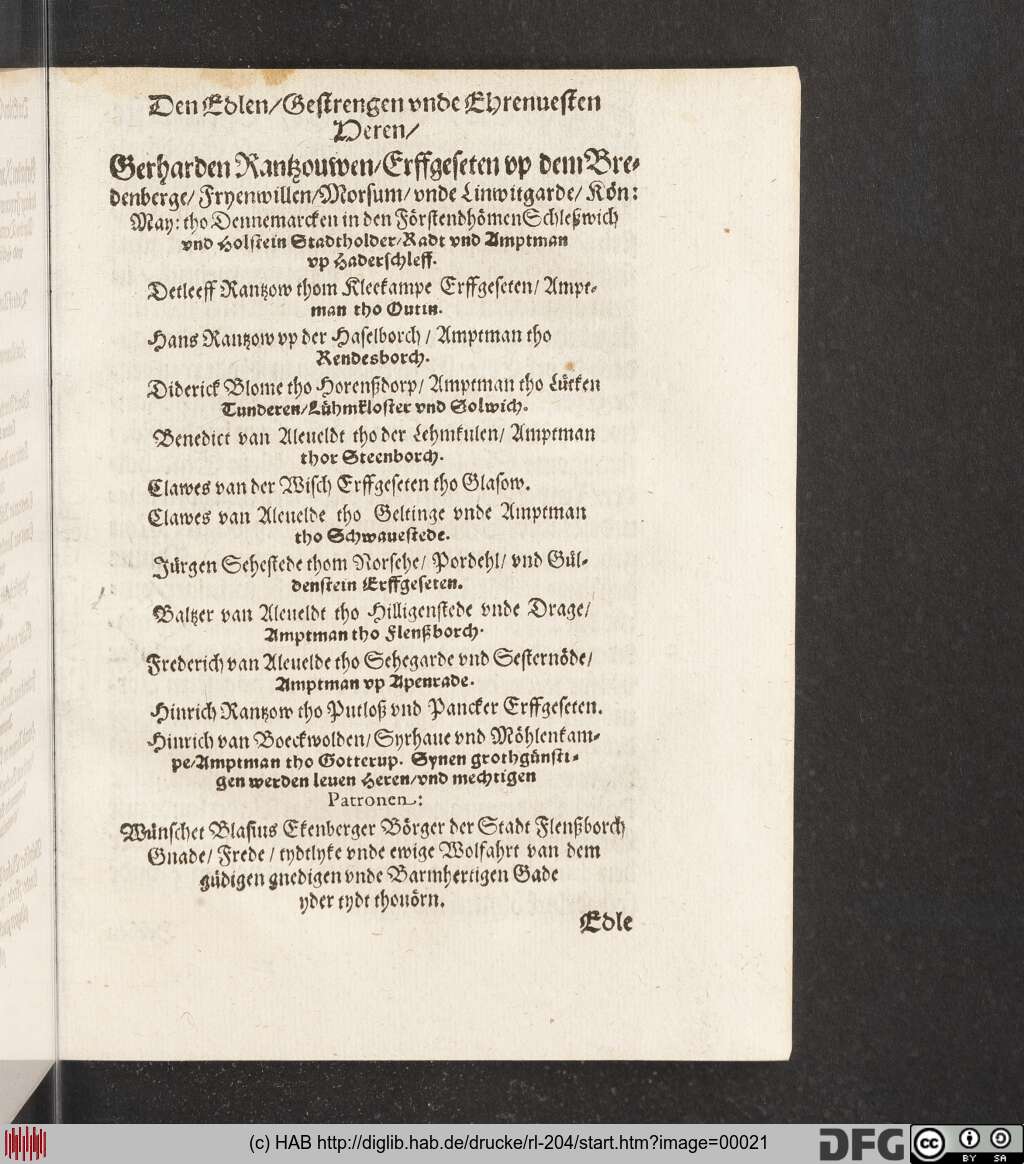 Den Edlen/Gestrengen vnde Ehrenuesten
Heren/
Gerharden Rantzouwen/Erffgeseten vp dem Bre-
denberge/Fryenwillen/Morsum/vnde Linwitgarde/Kön:
May: tho Dennemarcken in den Förstendhömen Schleßwich
vnd Holstein Stadtholder/Radt vnd Amptman
vp Haderschleff.
Detleeff Rantzow thom Kleekampe Erffgeseten/Ampt-
man tho Outin.
Hans Rantzow vp der Haselborch/Amptman tho
Rendesborch.
Diderick Blome tho Horenßdorp/Amptman tho Lütken
Tunderen/Lühmkloster vnd Solwich.
Benedict van Aleueldt tho der Lehmkulen/Amptman
thor Steenborch.
Clawes van der Wisch Erffgeseten tho Glasow.
Clawes van Aleuelde tho Geltinge vnde Amptman
tho Schwauestede.
Jürgen Sehestede thom Norsehe/Pordehl/vnd Gül-
denstein Erffgeseten.
Baltzer van Aleueldt tho Hilligenstede vnde Drage/
Amptman tho Flenßborch.
Frederich van Aleuelde tho Sehegarde vnd Sesternöde/
Amptman vp Apenrade.
Hinrich Rantzow tho Putloß vnd Pancker Erffgeseten.
Hinrich van Boeckwolden/Syrhaue vnd Möhlenkam-
pe/Amptman tho Gotterup. Synen grothgünsti-
gen werden leuen Heren/vnd mechtigen
Patronen:
Wünschet Blasius Ekenberger Börger der Stadt Flenßborch
Gnade/Frede/tydtlyke vnde ewige Wolfahrt van dem
güdigen gnedigen vnde Barmhertigen Gade
yder tydt thouörn.
Edle
(c) HAB http://diglib.hab.de/drucke/rl-204/start.htm?image=00021
DFG
cc BY SA